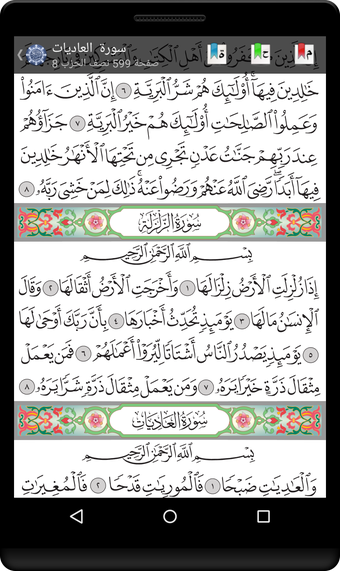 سورة العاديات
صفحة 599 نصف الحزب 8
م
ح
ة
خَٰلِدِينَ فِيهَآ أُو۟لَٰٓئِكَ هُمْ شَرُّ ٱلْبَرِيَّةِ ٦ إِنَّ ٱلَّذِينَ ءَامَنُوا۟
وَعَمِلُوا۟ ٱلصَّٰلِحَٰتِ أُو۟لَٰٓئِكَ هُمْ خَيْرُ ٱلْبَرِيَّةِ ٧ جَزَآؤُهُمْ
عِندَ رَبِّهِمْ جَنَّٰتُ عَدْنٍ تَجْرِى مِن تَحْتِهَا ٱلْأَنْهَٰرُ خَٰلِدِينَ
فِيهَآ أَبَدًا رَّضِىَ ٱللَّهُ عَنْهُمْ وَرَضُوا۟ عَنْهُ ذَٰلِكَ لِمَنْ خَشِىَ رَبَّهُۥ ٨
سُورَةُ الزَّلْزَلَةِ
بِسْمِ ٱللَّهِ ٱلرَّحْمَٰنِ ٱلرَّحِيمِ
إِذَا زُلْزِلَتِ ٱلْأَرْضُ زِلْزَالَهَا ١ وَأَخْرَجَتِ ٱلْأَرْضُ أَثْقَالَهَا ٢ وَقَالَ
ٱلْإِنسَٰنُ مَا لَهَا ٣ يَوْمَئِذٍ تُحَدِّثُ أَخْبَارَهَا ٤ بِأَنَّ رَبَّكَ أَوْحَىٰ لَهَا
٥ يَوْمَئِذٍ يَصْدُرُ ٱلنَّاسُ أَشْتَاتًا لِّيُرَوْا۟ أَعْمَٰلَهُمْ ٦ فَمَن يَعْمَلْ
مِثْقَالَ ذَرَّةٍ خَيْرًا يَرَهُۥ ٧ وَمَن يَعْمَلْ مِثْقَالَ ذَرَّةٍ شَرًّا يَرَهُۥ ٨
سُورَةُ العَادِيَاتِ
بِسْمِ ٱللَّهِ ٱلرَّحْمَٰنِ ٱلرَّحِيمِ
وَٱلْعَٰدِيَٰتِ ضَبْحًا ١ فَٱلْمُورِيَٰتِ قَدْحًا ٢ فَٱلْمُغِيرَٰتِ